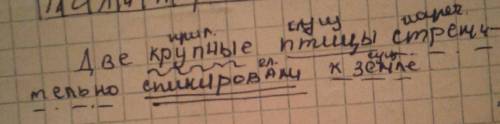 прил. сущ нареч.
Две крупные птицы стреми-
гл. сущ.
тельно спикировали к земле